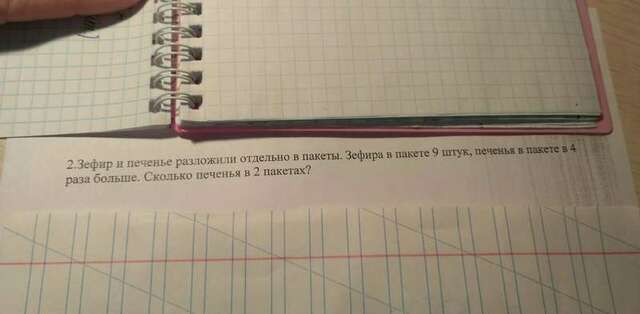 2.Зефир и печенье разложили отдельно в пакеты. Зефира в пакете 9 штук, печенья в пакете в 4
раза больше. Сколько печенья в 2 пакетах?